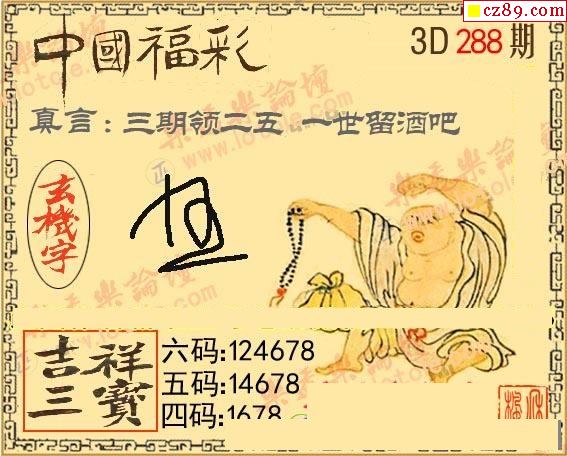 cz89.com
中國福彩
3D 288 期
真言：三期领二五 一世留酒吧
玄機字
吉祥三寶
六码:124678
五码:14678
四码:1678